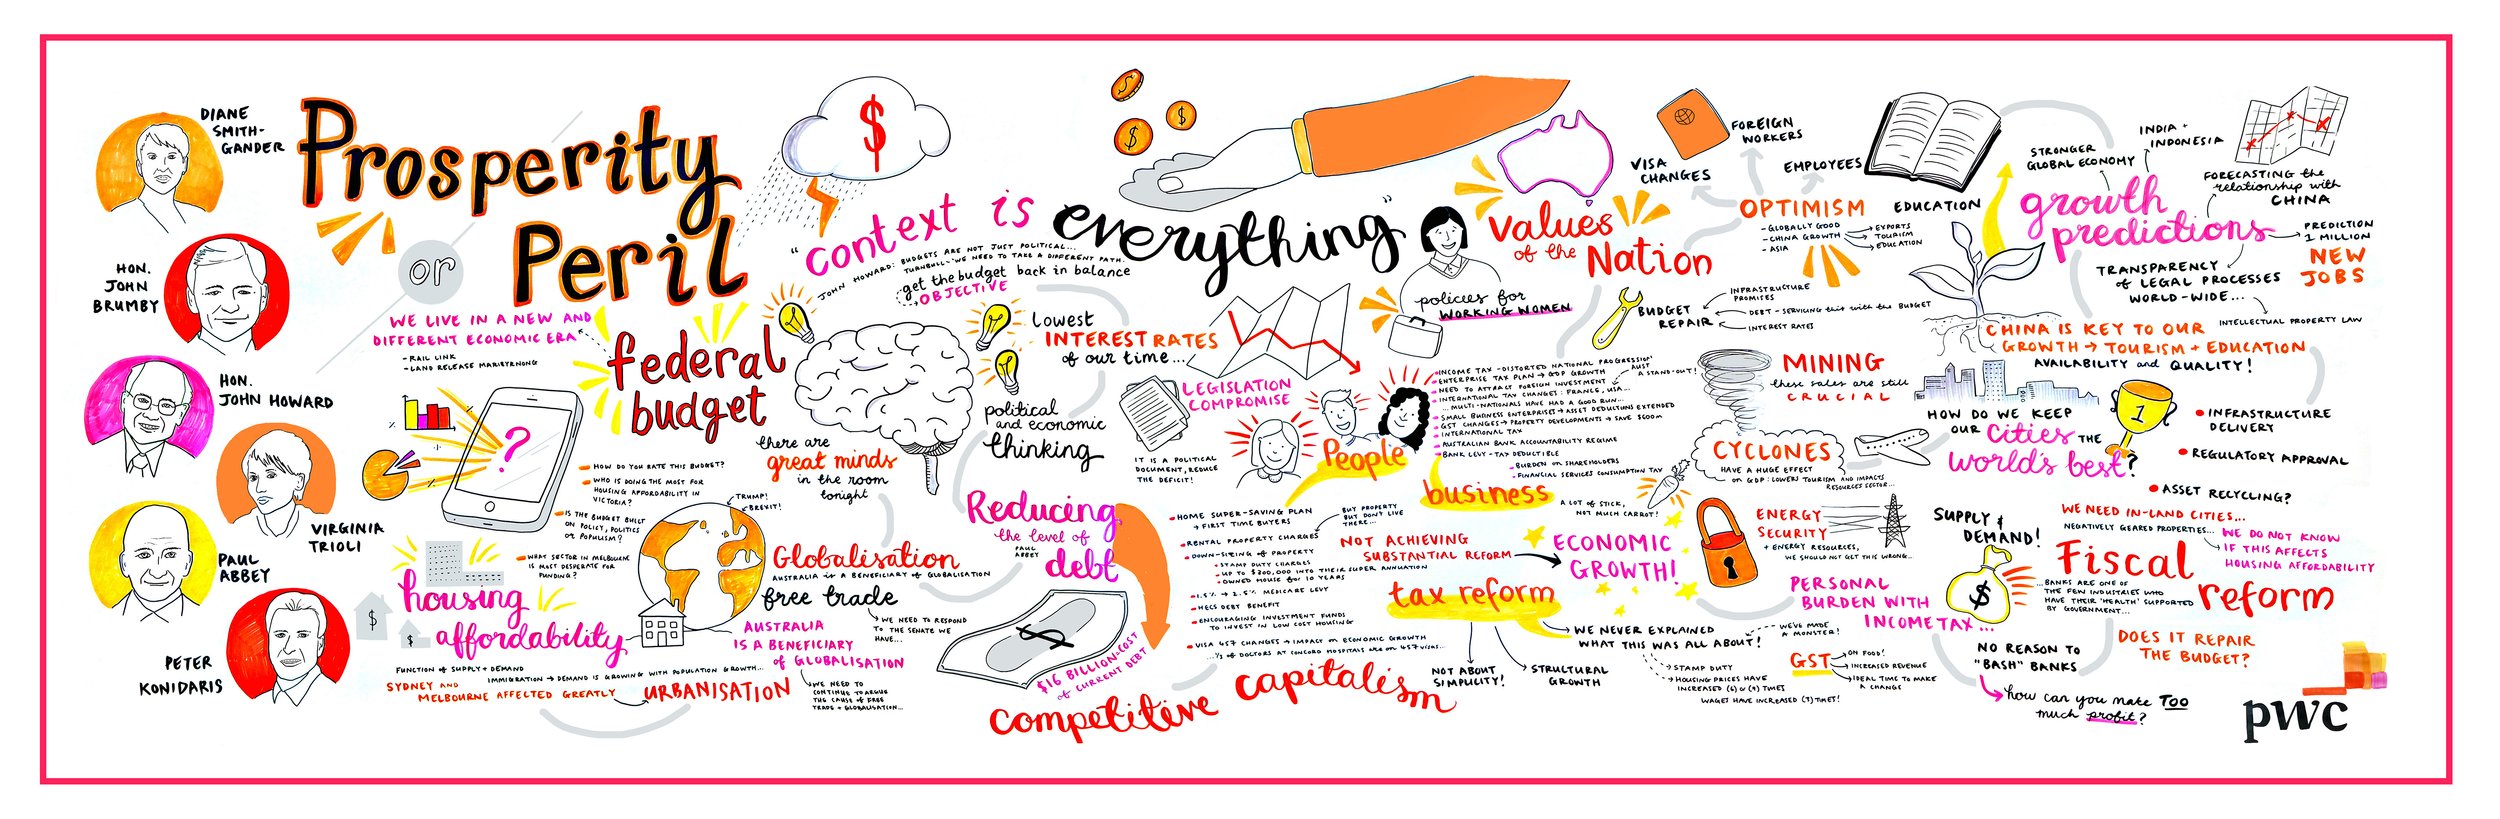 DIANE
SMITH-
GANDER
HON.
JOHN
BRUMBY
HON.
JOHN HOWARD
VIRGINIA
TRIOLI
PAUL
ABBEY
PETER
KONIDARIS
Prosperity
or
Peril
WE LIVE IN A NEW AND
DIFFERENT ECONOMIC ERA
- RAIL LINK
- LAND RELEASE MARIBYRNONG
federal
budget
%
?
HOW DO YOU RATE THIS BUDGET?
WHO IS DOING THE MOST FOR
HOUSING AFFORDABILITY IN
VICTORIA?
IS THE BUDGET BUILT
ON POLICY, POLITICS
OR POPULISM?
WHAT SECTOR IN MELBOURNE
IS MOST DESPERATE FOR
FUNDING?
housing
affordability
$
$
FUNCTION of SUPPLY + DEMAND
IMMIGRATION → DEMAND IS GROWING WITH POPULATION GROWTH...
SYDNEY AND
MELBOURNE AFFECTED GREATLY
URBANISATION
$
"context is everything"
JOHN HOWARD: BUDGETS ARE NOT JUST POLITICAL...
TURNBULL - WE NEED TO TAKE A DIFFERENT PATH.
get the budget back in balance
OBJECTIVE
there are
great minds
in the room
tonight
Lowest
INTEREST RATES
of our time...
political
and economic
thinking
TRUMP!
BREXIT!
Globalisation
AUSTRALIA is A BENEFICIARY of GLOBALISATION
free trade
WE NEED TO RESPOND
TO THE SENATE WE
HAVE...
AUSTRALIA
IS A BENEFICIARY
of GLOBALISATION
WE NEED TO
CONTINUE TO ARGUE
THE CAUSE OF FREE
TRADE + GLOBALISATION...
Reducing
the level of
PAUL
ABBEY
debt
$
$16 BILLION = COST
of CURRENT DEBT
competitive capitalism
$
$
$
LEGISLATION
COMPROMISE
IT IS A POLITICAL
DOCUMENT, REDUCE
THE DEFICIT!
People
HOME SUPER-SAVING PLAN
→ FIRST TIME BUYERS
BUY PROPERTY
BUT DON'T LIVE
THERE...
RENTAL PROPERTY CHARGES
DOWN-SIZING of PROPERTY
STAMP DUTY CHARGES
UP TO $300,000 INTO THEIR SUPER ANNUATION
OWNED HOUSE for 10 YEARS
1.5% → 2.5% MEDICARE LEVY
HECS DEBT BENEFIT
ENCOURAGING INVESTMENT FUNDS
TO INVEST IN LOW COST HOUSING
VISA 457 CHANGES → IMPACT on ECONOMIC GROWTH
...⅓ of DOCTORS AT CONCORD HOSPITALS ARE on 457 VISAS...
policies for
WORKING WOMEN
Values
of the Nation
INCOME TAX - DISTORTED NATIONAL PROGRESSION
ENTERPRISE TAX PLAN → GDP GROWTH
NEED TO ATTRACT FOREIGN INVESTMENT
AUST
A STAND-OUT!
INTERNATIONAL TAX CHANGES: FRANCE, USA...
...MULTI-NATIONALS HAVE HAD A GOOD RUN...
SMALL BUSINESS ENTERPRISES → ASSET DEDUCTIONS EXTENDED
GST CHANGES → PROPERTY DEVELOPMENTS → SAVE $600m
INTERNATIONAL TAX
AUSTRALIAN BANK ACCOUNTABILITY REGIME
BANK LEVY - TAX DEDUCTIBLE
- BURDEN on SHAREHOLDERS
- FINANCIAL SERVICES CONSUMPTION TAX
business
A LOT of STICK,
NOT MUCH CARROT!
NOT ACHIEVING
SUBSTANTIAL REFORM
ECONOMIC
GROWTH!
tax reform
NOT ABOUT
SIMPLICITY!
STRUCTURAL
GROWTH
WE NEVER EXPLAINED
WHAT THIS WAS ALL ABOUT!
WE'VE MADE
A MONSTER!
STAMP DUTY
HOUSING PRICES HAVE
INCREASED (6) or (9) TIMES
WAGES HAVE INCREASED (3) TIMES!
GST
ON FOOD!
INCREASED REVENUE
IDEAL TIME TO MAKE
A CHANGE
VISA
CHANGES
FOREIGN
WORKERS
EMPLOYEES
OPTIMISM
- GLOBALLY GOOD
- CHINA GROWTH
- ASIA
EXPORTS
TOURISM
EDUCATION
EDUCATION
BUDGET
REPAIR
INFRASTRUCTURE
PROMISES
DEBT - SERVICING this with the BUDGET
INTEREST RATES
MINING
these sales are still
CRUCIAL
CYCLONES
HAVE A HUGE EFFECT
on GDP: LOWERS TOURISM AND IMPACTS
RESOURCES SECTOR...
ENERGY
SECURITY
+ ENERGY RESOURCES,
WE SHOULD NOT GET THIS WRONG...
PERSONAL
BURDEN WITH
INCOME TAX...
growth
predictions
STRONGER
GLOBAL ECONOMY
INDIA +
INDONESIA
FORECASTING the
relationship with
CHINA
PREDICTION
1 MILLION
NEW
JOBS
TRANSPARENCY
of LEGAL PROCESSES
WORLD-WIDE...
INTELLECTUAL PROPERTY LAW
CHINA IS KEY TO OUR
GROWTH → TOURISM + EDUCATION
AVAILABILITY and QUALITY!
HOW DO WE KEEP
OUR cities THE
world's best?
1
INFRASTRUCTURE
DELIVERY
REGULATORY APPROVAL
ASSET RECYCLING?
WE NEED IN-LAND CITIES...
NEGATIVELY GEARED PROPERTIES...
WE DO NOT KNOW
IF THIS AFFECTS
HOUSING AFFORDABILITY
SUPPLY +
DEMAND!
$
Fiscal
reform
...BANKS ARE ONE OF
THE FEW INDUSTRIES WHO
HAVE THEIR 'HEALTH' SUPPORTED
BY GOVERNMENT...
DOES IT REPAIR
THE BUDGET?
NO REASON TO
"BASH" BANKS
how can you make TOO
much profit?
pwc